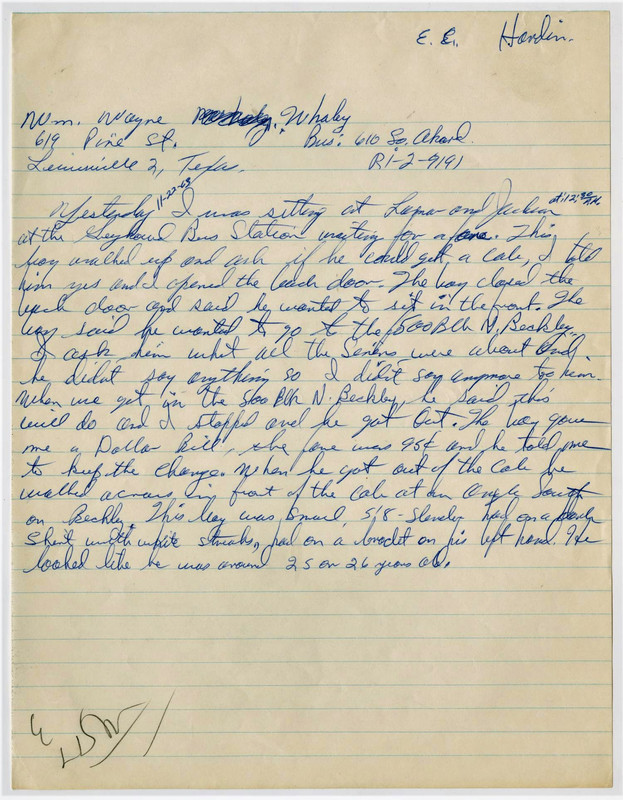 E. E. Hardin.
Wm. Wayne Whaley
619 Pine St. Bus: 610 So. Akard.
Lewisville 2, Texas. RI-2-9191
Yesterday 11-22-63 I was sitting at Lamar and Jackson at: 12:30 PM
at the Greyhound Bus Station waiting for a fare. This
boy walked up and ask if he could get a cab, I told
him yes and I opened the back door. The boy closed the
back door and said he wanted to sit in the front. The
boy said he wanted to go to the 500 Blk N. Beckley.
I ask him what all the Sirens were about and
he didnt say anything so I didnt say anymore too him.
When we got in the 500 Blk N. Beckley, he said this
will do and I stopped and he got out. The boy gave
me a Dollar bill, the fare was 95¢ and he told me
to keep the change. When he got out of the cab he
walked across in front of the cab at an angle South
on Beckley. This boy was small, 5/8 - Slender had on a dark
Shirt with white streaks, had on a braclet on his left hand. He
looked like he was around 25 or 26 years old.